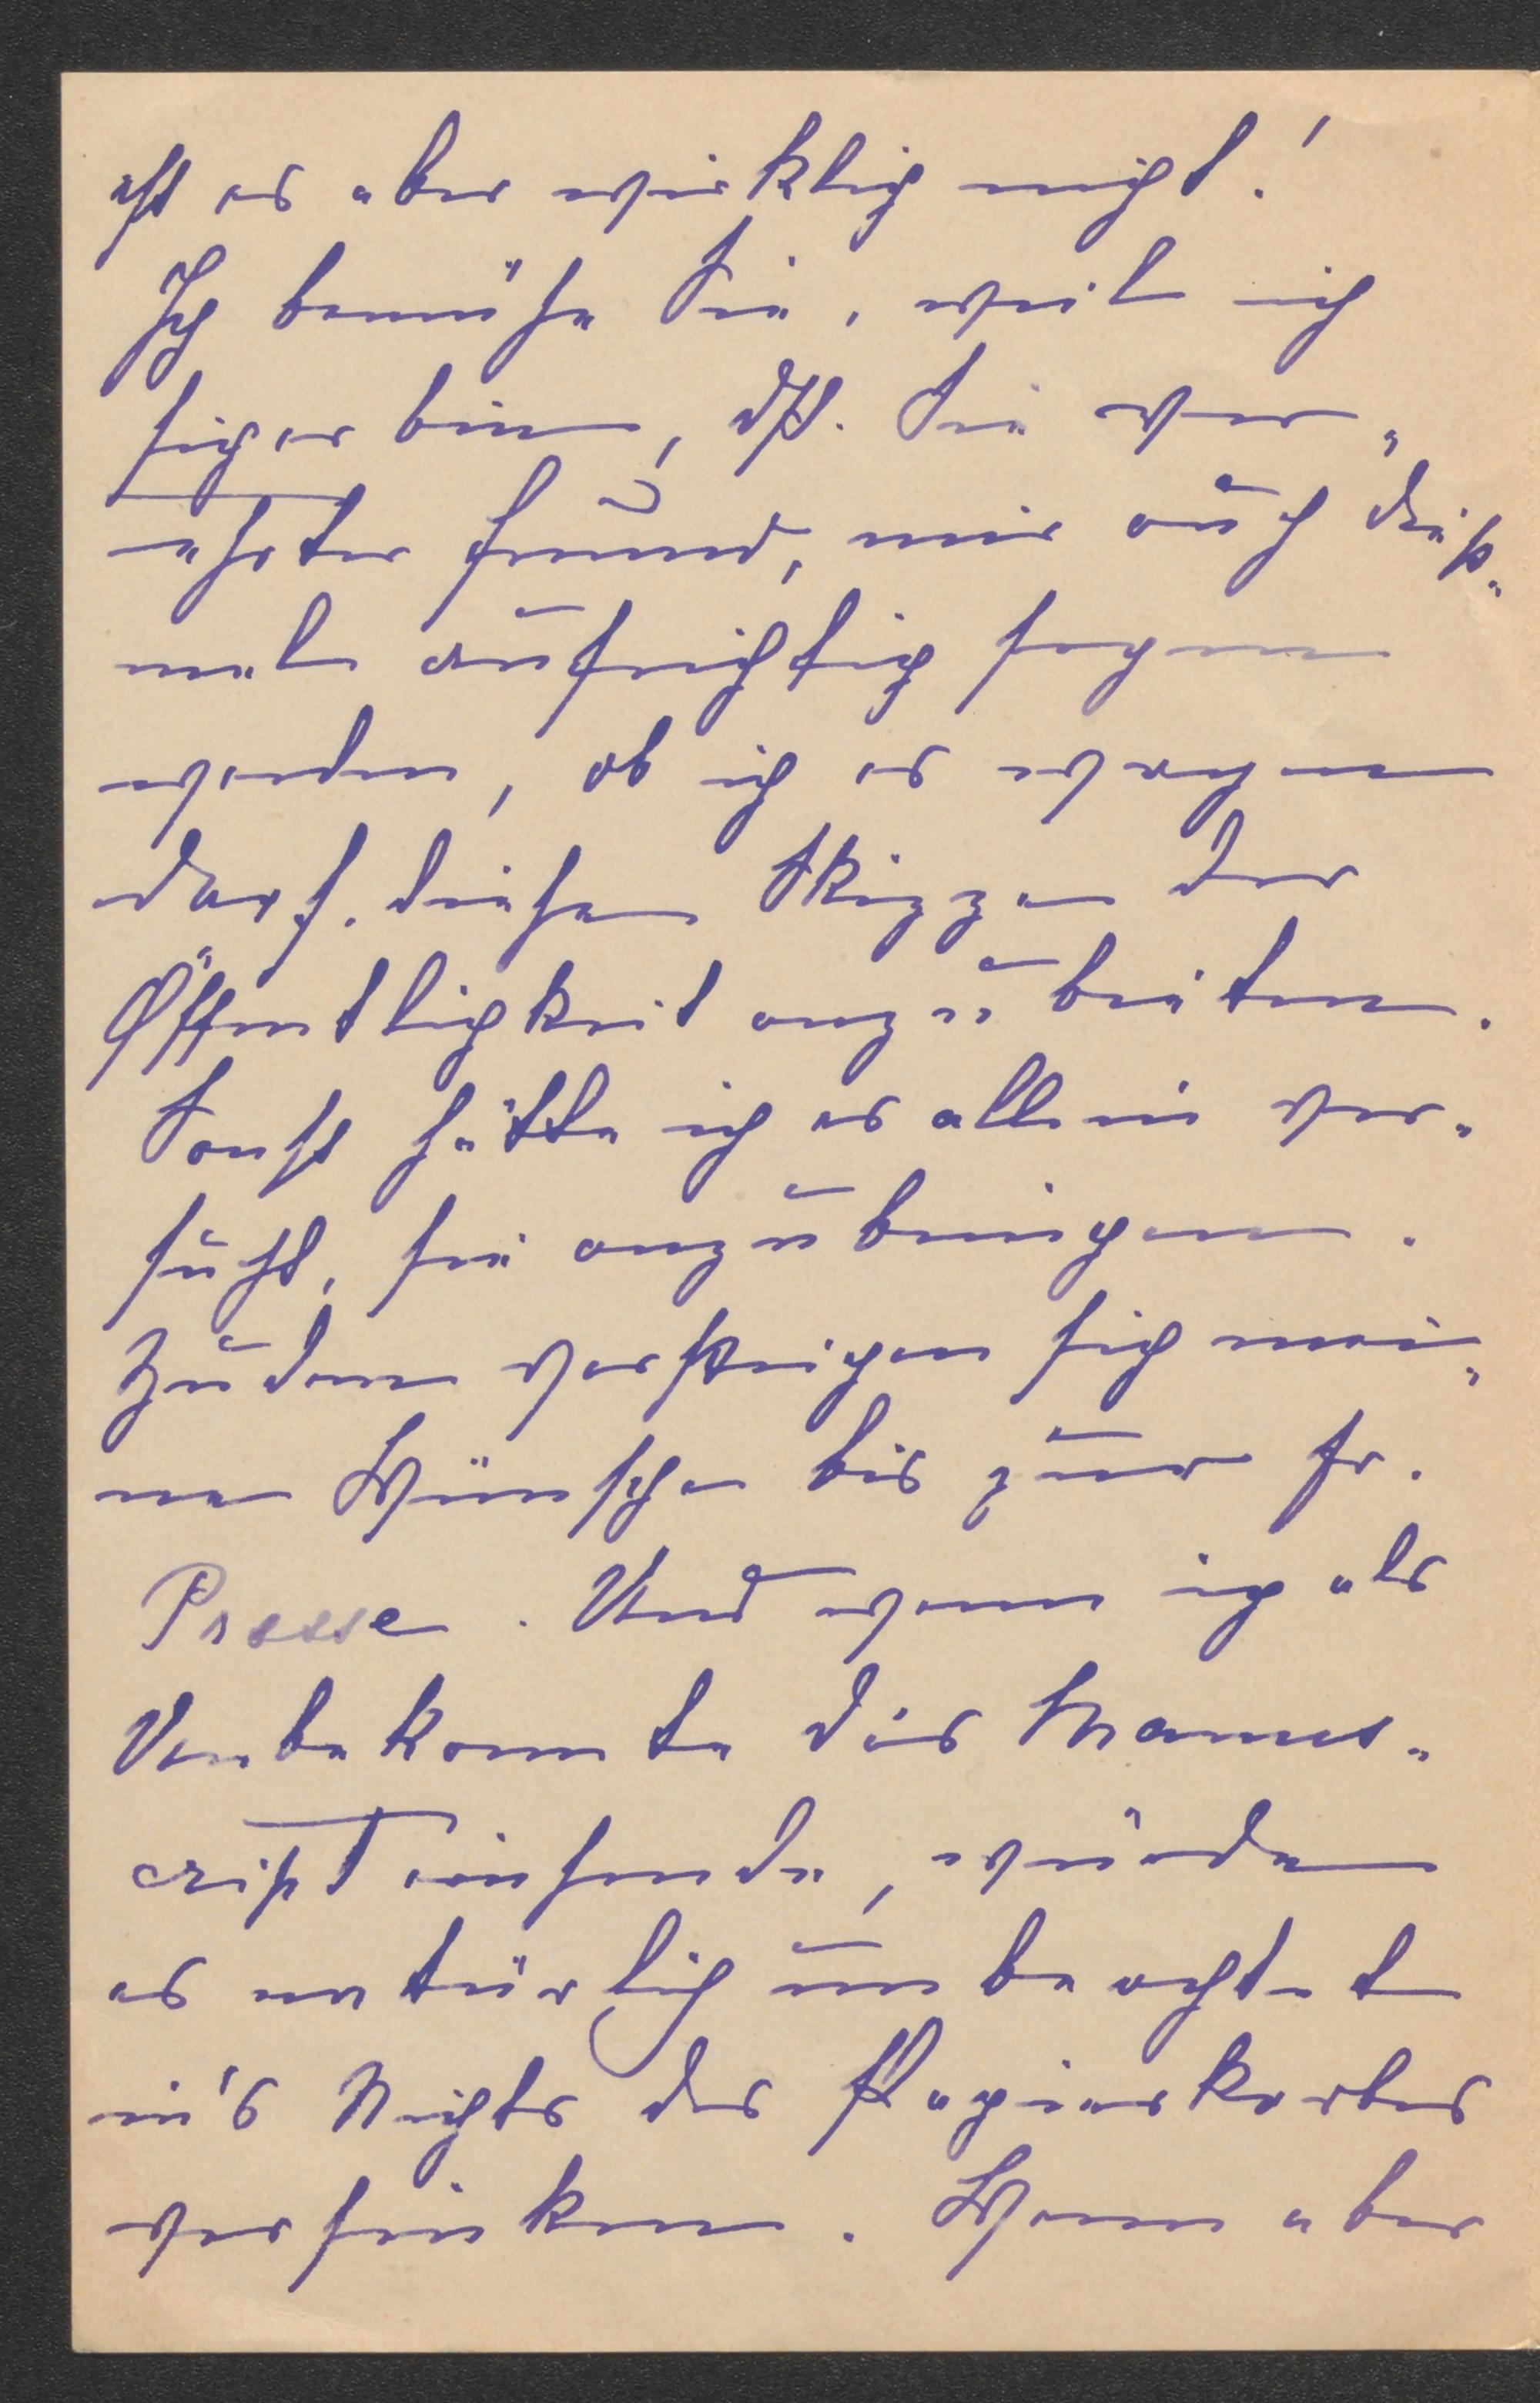 ist es aber wirklich nicht!
Ich bemühe Sie, weil ich
sicher bin, dß. Sie ver-
ehrter Freund, mir auch dieß-
mal aufrichtig sagen
werden, ob ich es wagen
darf. diese Skizzen der
Öffentlichkeit anzubieten.
Sonst hätte ich es allein ver-
sucht, sie anzubringen.
Zudem versteigen sich mei-
ne Wünsche bis zur fr.
Presse. Und wenn ich als
Unbekannte das Manus-
cript einsende, würde
es natürlich unbeachtet
in's Nichts des Papierkorbes
versinken. Wenn aber